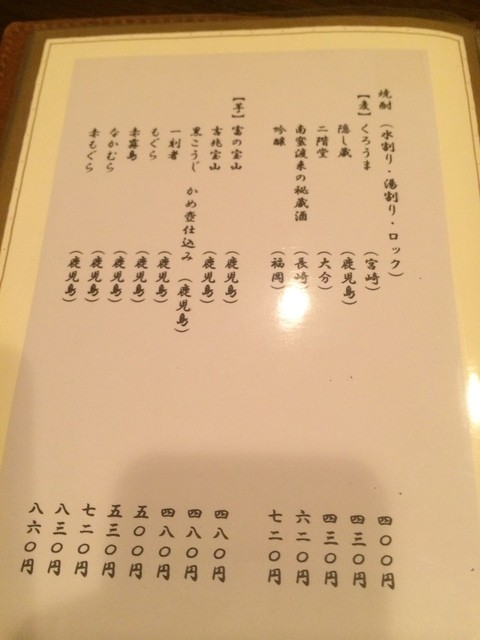 焼酎（水割り・湯割り・ロック）
【麦】くろうま（宮崎）四〇〇円
隠し蔵（鹿児島）四三〇円
二階堂（大分）四三〇円
南蛮渡来の秘蔵酒（長崎）六二〇円
吟醸（福岡）七二〇円
【芋】富の宝山（鹿児島）四八〇円
吉兆宝山（鹿児島）四八〇円
黒こうじ かめ壺仕込み（鹿児島）四八〇円
一刻者（鹿児島）五〇〇円
もぐら（鹿児島）五三〇円
赤霧島（鹿児島）七二〇円
なかむら（鹿児島）八三〇円
赤もぐら（鹿児島）八六〇円